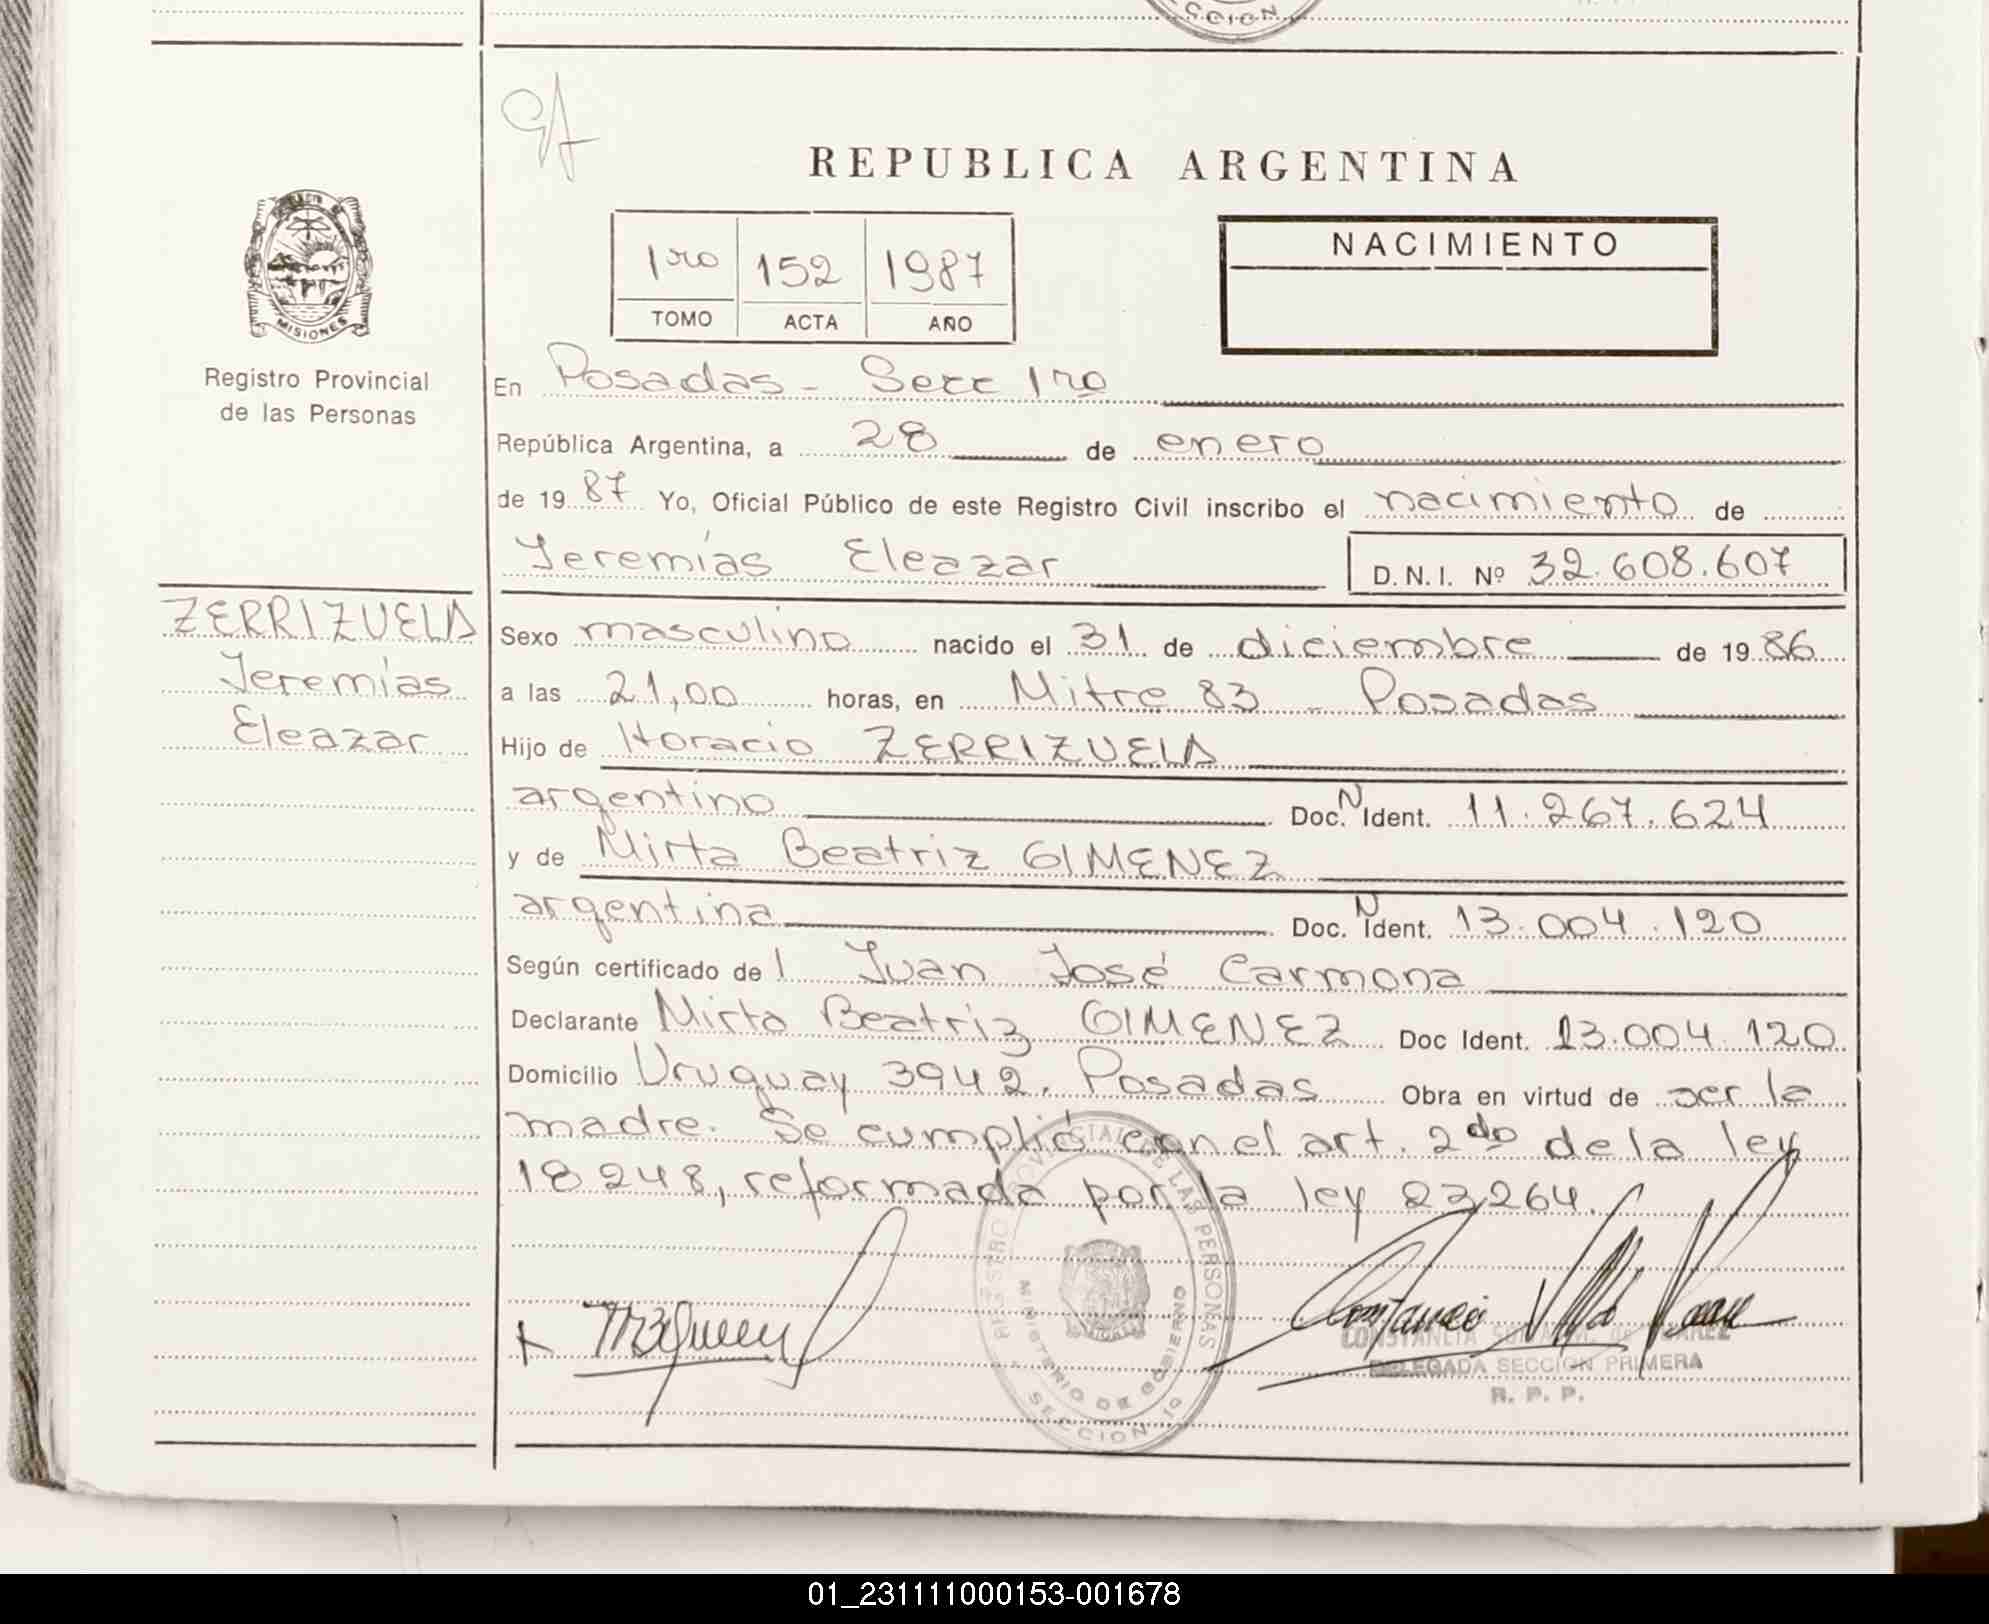 CCION
REPUBLICA ARGENTINA
NACIMIENTO
1ro 152 1987
TOMO ACTA AÑO
MISIONES
Registro Provincial
de las Personas
En Posadas - Secc 1ra
República Argentina, a 28 de enero
de 1987 Yo, Oficial Público de este Registro Civil inscribo el nacimiento de
Jeremías Eleazar D.N.I. Nº 32.608.607
ZERRIZUELA
Jeremías
Eleazar
Sexo masculino nacido el 31 de diciembre de 1986
a las 21,00 horas, en Mitre 83 - Posadas
Hijo de Horacio ZERRIZUELA
argentino Doc. N Ident. 11.267.624
y de Mirta Beatriz GIMENEZ
argentina Doc. N Ident. 13.004.120
Según certificado de l Juan José Carmona
Declarante Mirta Beatriz GIMENEZ Doc Ident. 13.004.120
Domicilio Uruguay 3942. Posadas Obra en virtud de ser la
madre. Se cumplió con el art. 2do de la ley
18248, reformada por la ley 23264.
REGISTRO PROVINCIAL DE LAS PERSONAS
MINISTERIO DE GOBIERNO
SECCION 1a
CONSTANCIA
DELEGADA SECCION PRIMERA
R. P. P.
01_231111000153-001678